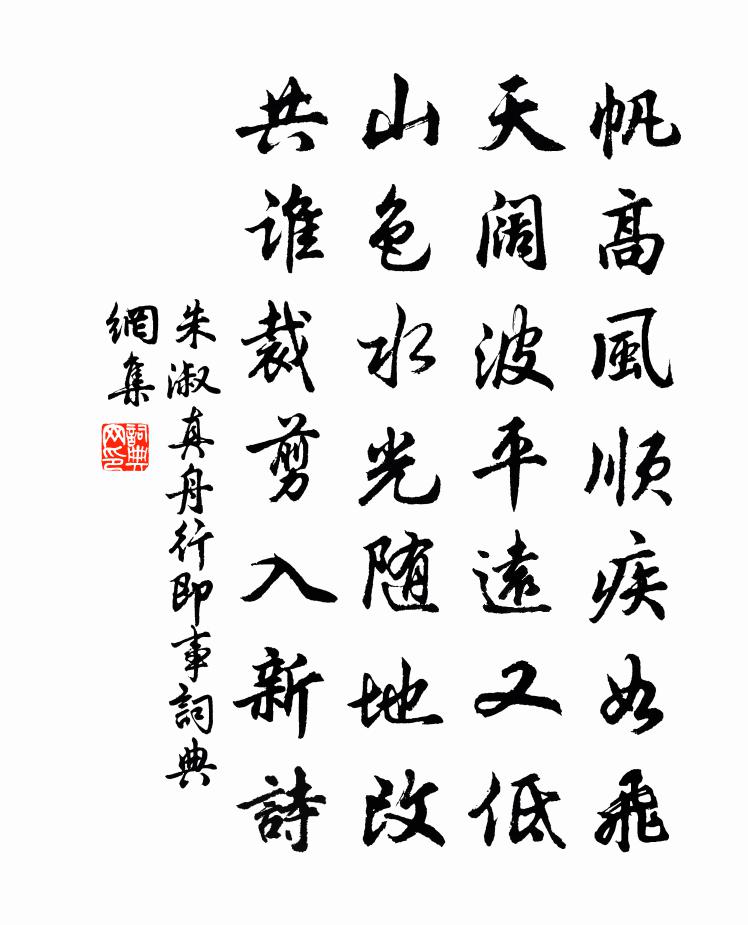 帆高風順疾如飛
天闊波平遠又低
山色水光随地改
共誰裁剪入新詩
朱淑真舟行即事詞典
網集
詞典
网印